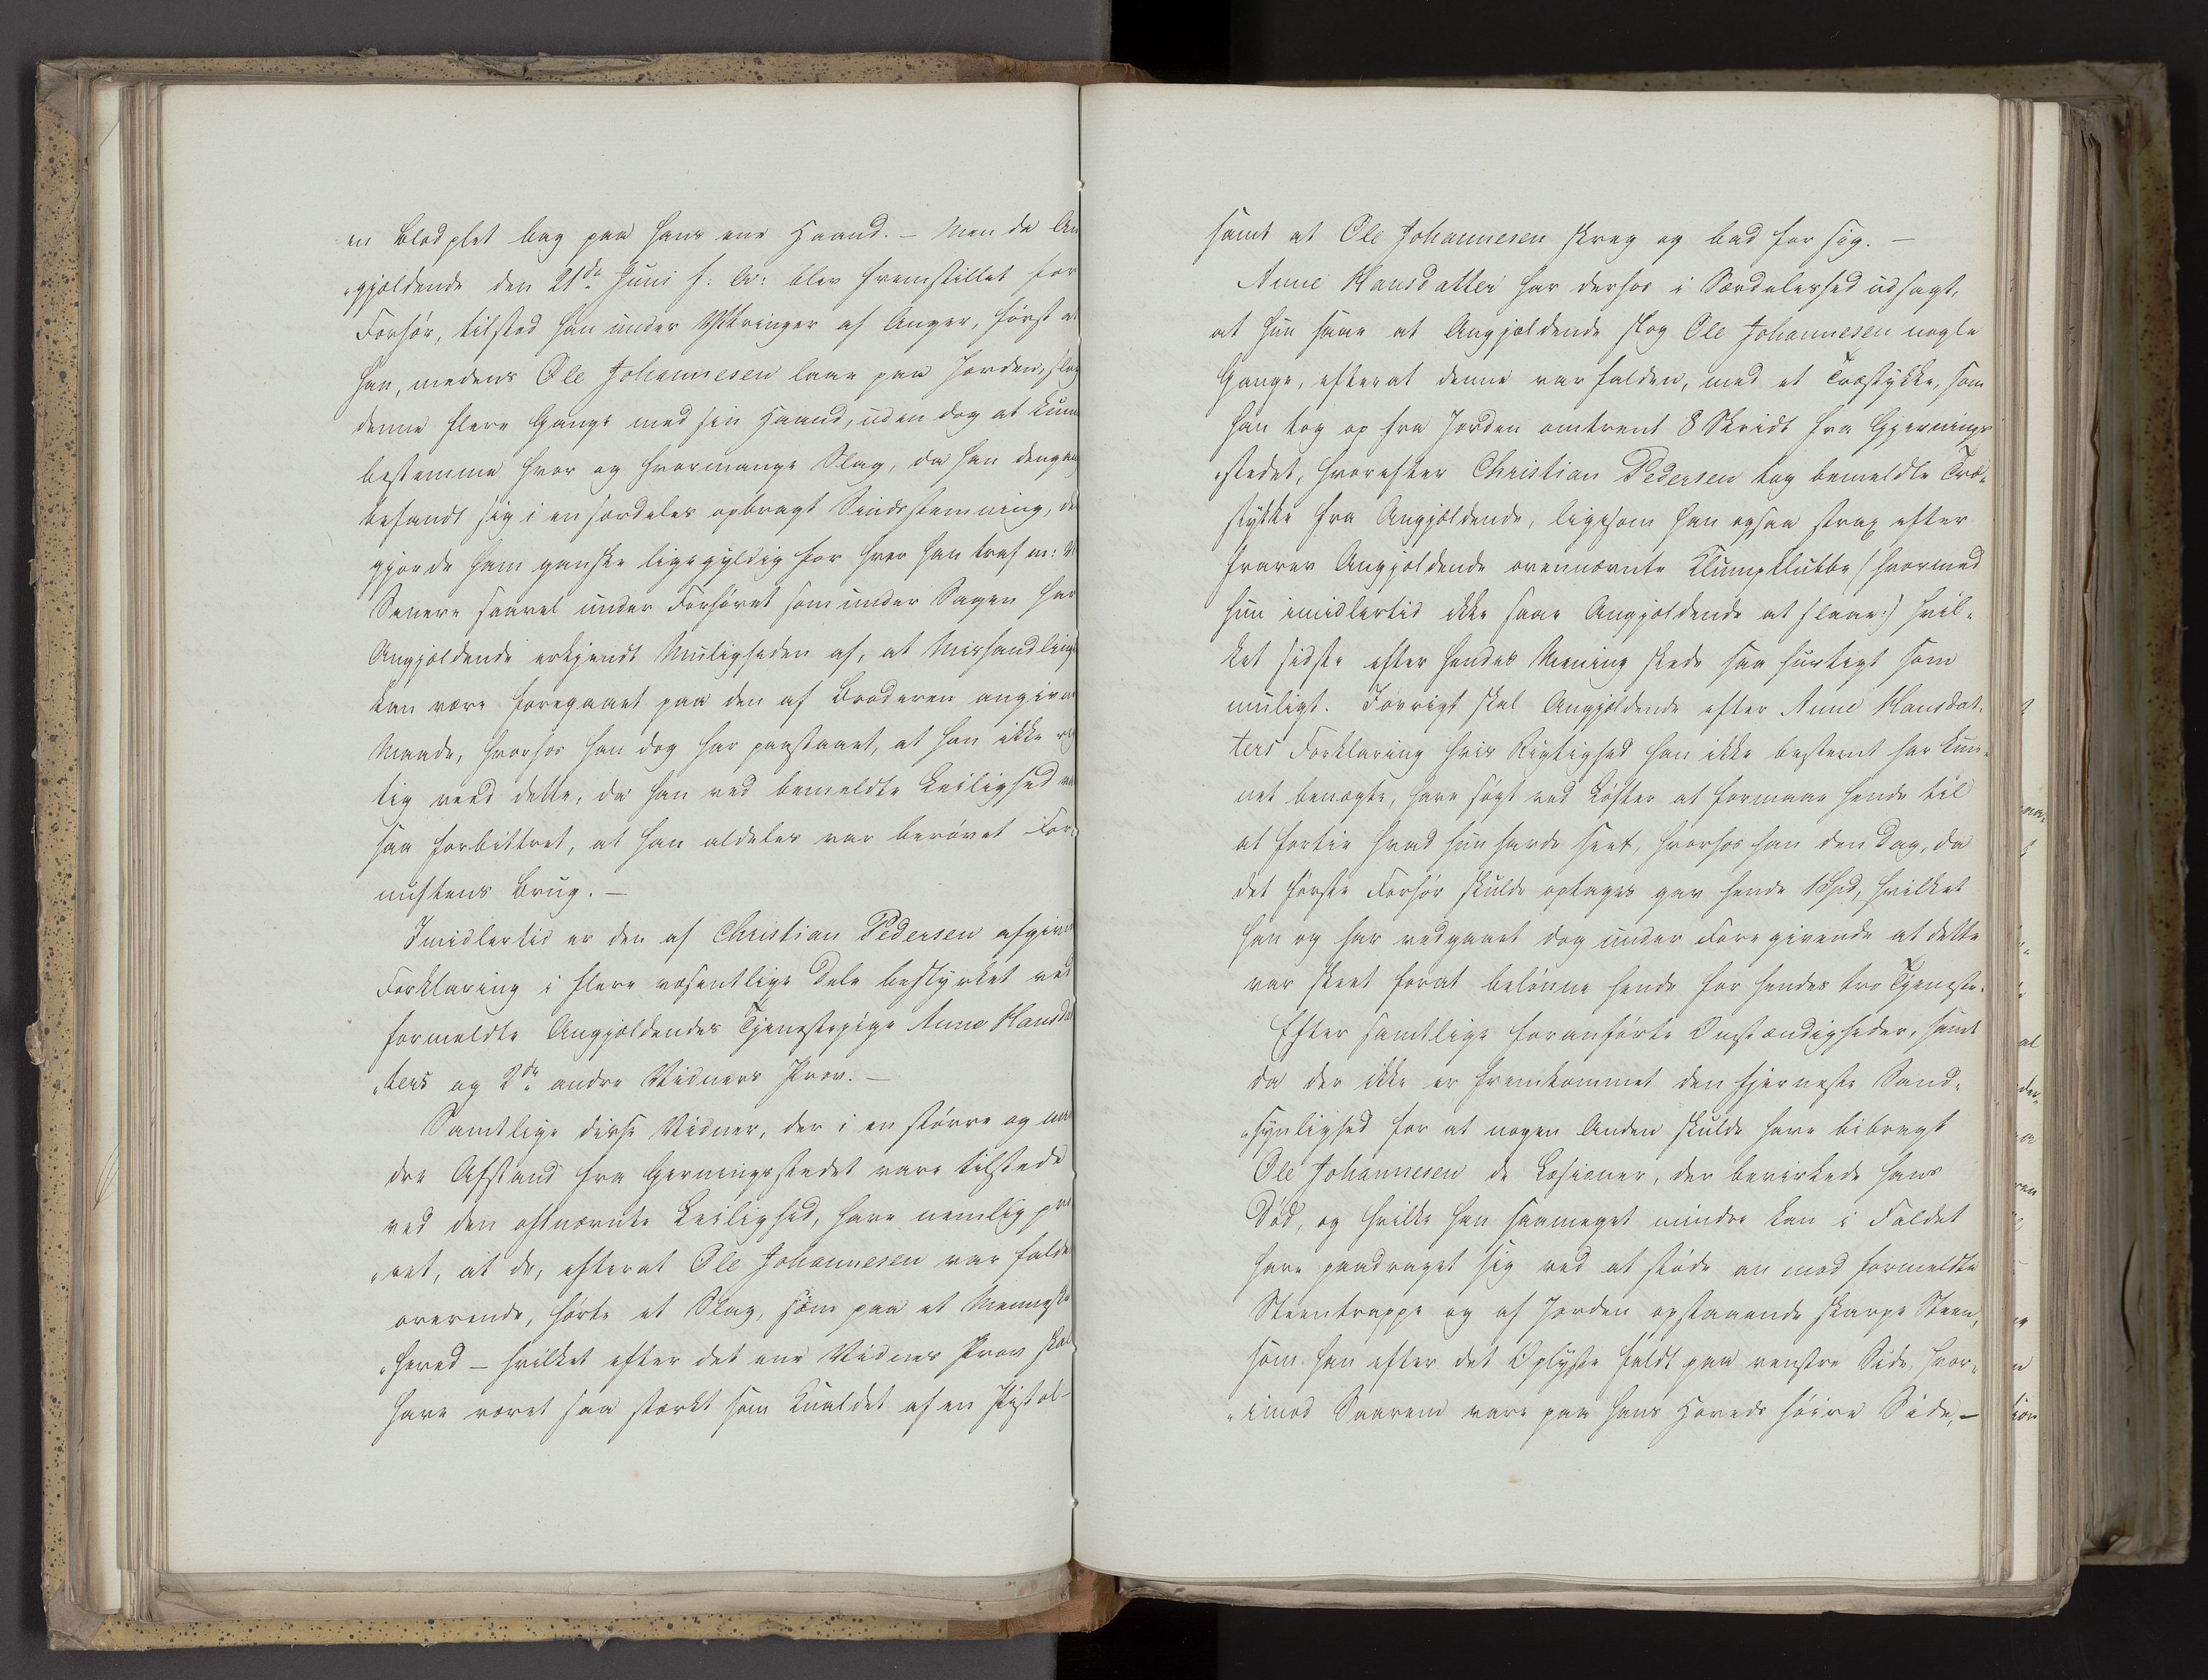 en Blodplet bag paa hans ene Haand. – Men da An
„gjældende den 21de Juni f: A: blev fremstillet for
Forhør, tilstod han under Yttringer af Anger, først at
han, medens Ole Johannesen laae paa Jorden, slog
denne flere Gange med sin Haand, uden dog at kun
bestemme hvor og hvormange Slag, da han dengan
befandt sig i en særdeles opbragt Sindsstemning, de
gjorde ham ganske ligegyldig for hvor han traf m: V:
Senere saavel under Forhøret som under Sagen har
Angjældende erkjendt Muligheden af, at Mishandling
kan være foregaaet paa den af Broderen angivne
Maade, hvorhos han dog har paastaaet, at han ikke rig
tig veed dette, da han ved bemeldte Leilighed var
saa forbittret, at han aldeles var berøvet For-
nuftens Brug. –
Imidlertid er den af Christian Pedersen afgivne
Forklaring i flere væsentlige Dele bestyrket ved
formeldte Angjældendes Tjenestepige Anne Hansdat
„ters og 2de andre Vidners Prov. –
Samtlige disse Vidner, der i en større og min
dre Afstand fra Gerningsstedet vare tilstede
ved den ofnævnte Leilighed, have nemlig pro
„vet, at de, efterat Ole Johannesen var falde
overende, hørte et Slag, som paa et Menneske
„hoved – hvilket efter det ene Vidnes Prov skal
have været saa stærkt som Knaldet af en Pistol –
samt at Ole Johannesen skreg og bad for sig. –
Anne Hansdatter har derhos i Særdeleshed udsagt,
at hun saae at Angjældende slog Ole Johannesen nogle
Gange, efterat denne var falden, med et Træstykke, som
han tog op fra Jorden omtrent 8 Skridt fra Gjernings
„stedet, hvorefter Christian Pedersen tog bemeldte Træ-
stykke fra Angjældende, ligesom han ogsaa strax efter
fravrev Angjældende ovennævnte Klumpklubbe (hvormed
hun imidlertid ikke saae Angjældende at slaae:) hvil-
ket sidste efter hendes Mening skede saa hurtigt som
muligt. Iøvrigt skal Angjældende efter Anne Hansdat-
ters Forklaring hvis Rigtighed han ikke bestemt har kun-
net benægte, have søgt ved Løfter at formaae hende til
at fortie hvad hun havde seet, hvorhos han den Dag, da
det første Forhør skulde optages gav hende 1 Spd, hvilket
han og har vedgaaet dog under Foregivende at dette
var skeet forat belønne hende for hendes tro Tjeneste.
Efter samtlige foranførte Omstændigheder, samt
da der ikke er fremkommet den fjerneste Sand-
„synlighed for at nogen Anden skulde have bibragt
Ole Johannesen de Læsioner, der bevirkede hans
Død, og hvilke han saameget mindre kan i Faldet
have paadraget sig ved at støde an mod formeldte
Steentrappe og af Jorden opstaaende skarpe Steen,
som han efter det Oplyste faldt paa venstre Side, hvor-
„imod Saarene vare paa hans Hoveds høire Side, –